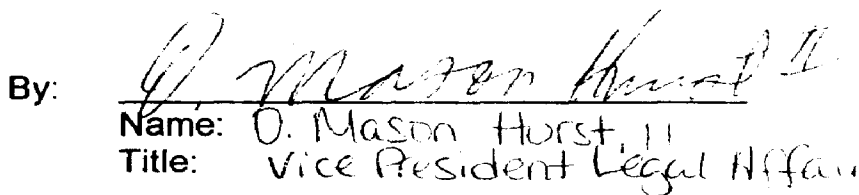 By: O. Mason Hurst II
Name: O. Mason Hurst, II
Title: Vice President Legal Affair